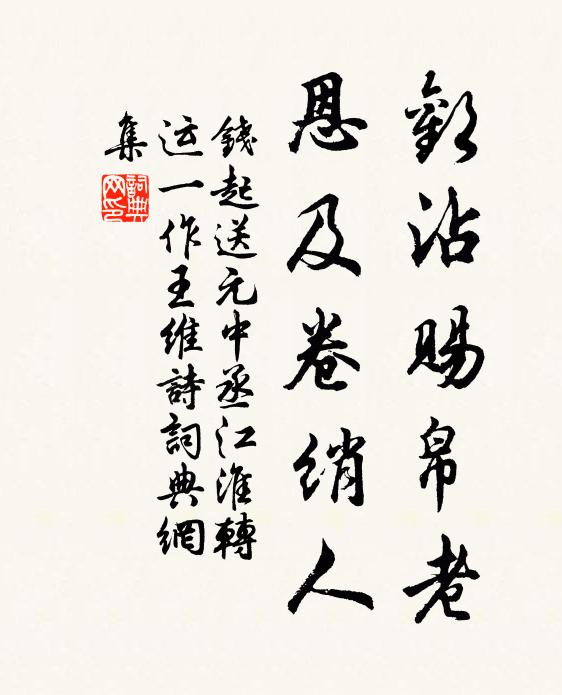 歡沾賜帛老
恩及卷綃人
錢起送元中丞江淮轉
运一作王維詩詞典網
集
詞典
网印